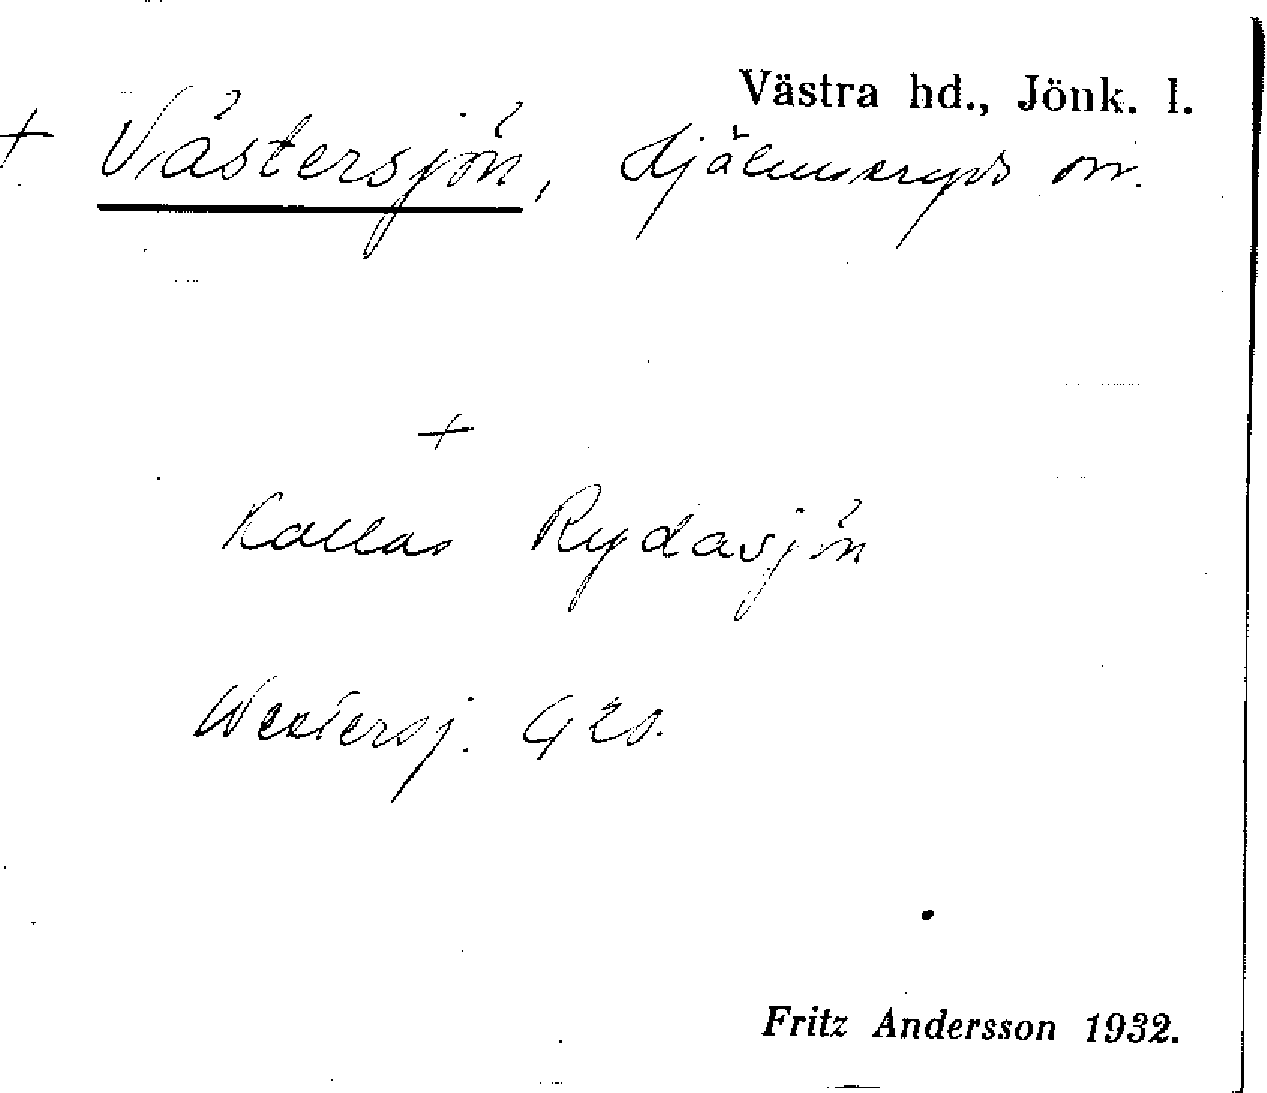 Västra hd., Jönk. l.
+ Västersjön, Hjälmseryds sn.
+
Kallas Rydasjön
Westersj. GES.
Fritz Andersson 1932.